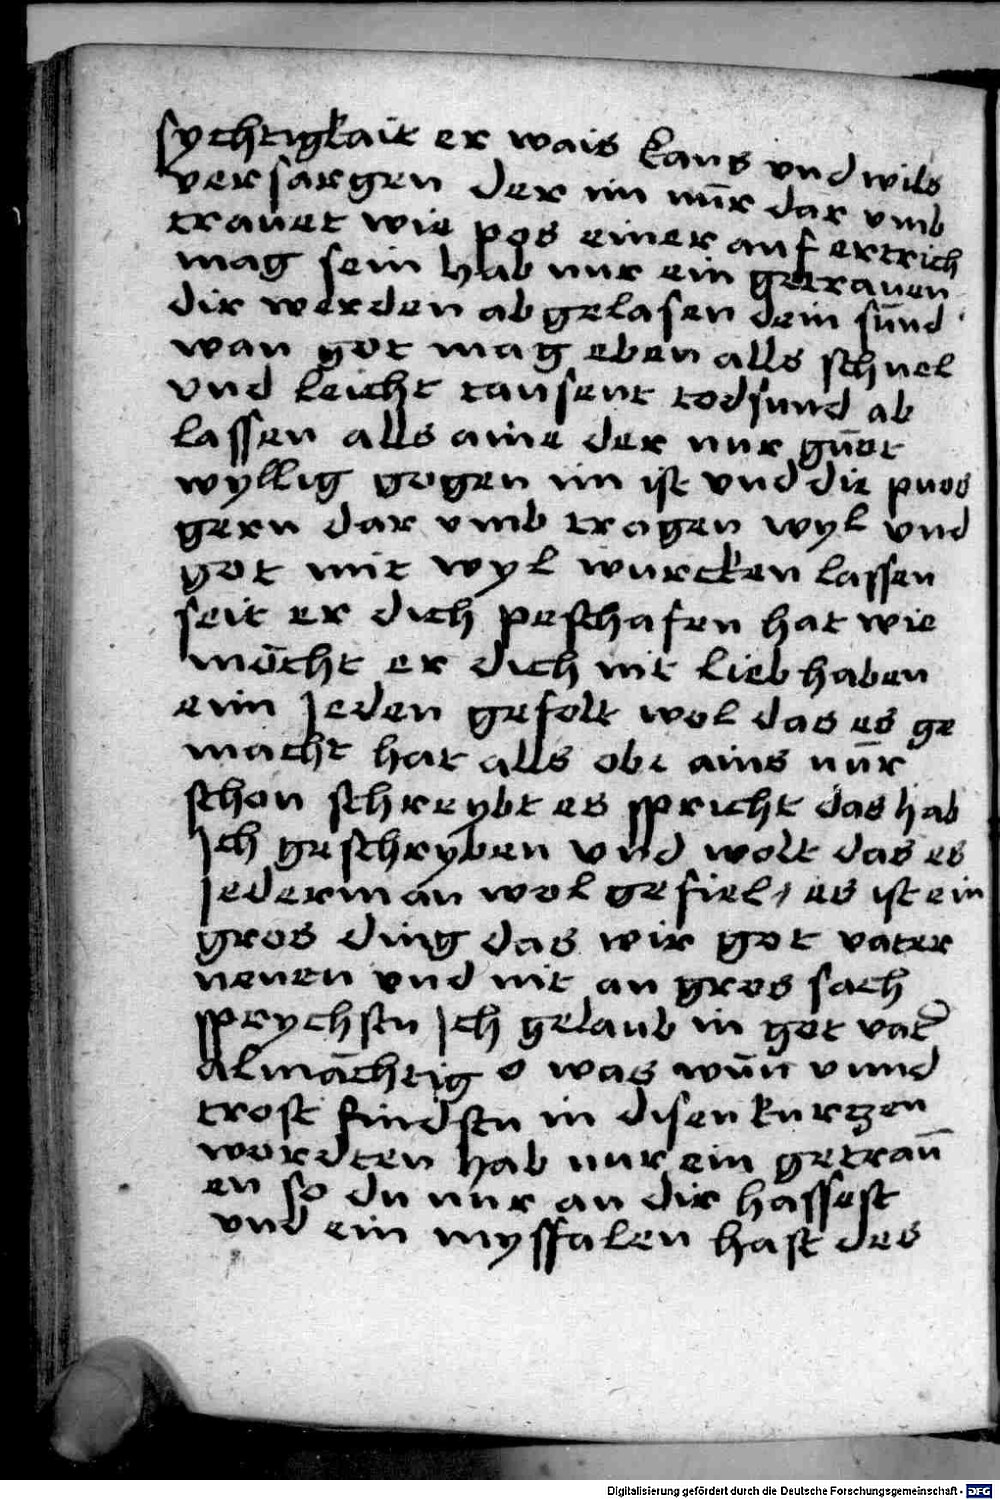 sychtigkait er wais kans vnd wils
versargen der im nūr dar vmb
trauet wie pos einer auf ertrich
mag sein hab nur ein getrauen
dir werden ab gelasen dein sūnd
wan got mag eben alls schnel
vnd leicht tausent todsund ab
lassen alls aine der nur gūot
wyllig gogen im ist vnd die puos
gern dar vmb tragen wyl vnd
got mit wyl wurcken lassen
seit er dich peschafen hat wie
mōcht er dich nit lieb haben
eim Jeden gefolt wol das es ge
macht hat alls obe ains nūr
schon schreybt es spricht das hab
Jch geschryben vnd wolt das es
Jederman wol gefiel / es ist ein
gros ding das wir got vater
nenen vnd nit an gros sach
sprychstu Jch gelaub in got vat͛
almāchtig o was wūn vnnd
trost findstu in disen kurtzen
wordten hab nur ein getraū
en so du nur an dir hassest
vnd ein myssfalen hast des
Digitalisierung gefördert durch die Deutsche Forschungsgemeinschaft - DFG